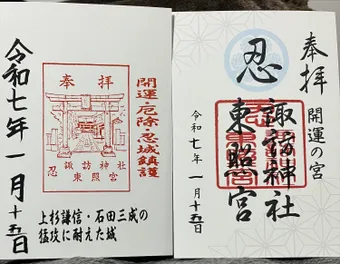 奉拝
開運の宮
忍
諏訪神社
東照宮
令和七年一月十五日
開運・厄除・忍城鎮護
奉拝
諏訪神社
忍東照宮
令和七年一月十五日
上杉謙信・石田三成の
猛攻に耐えた城